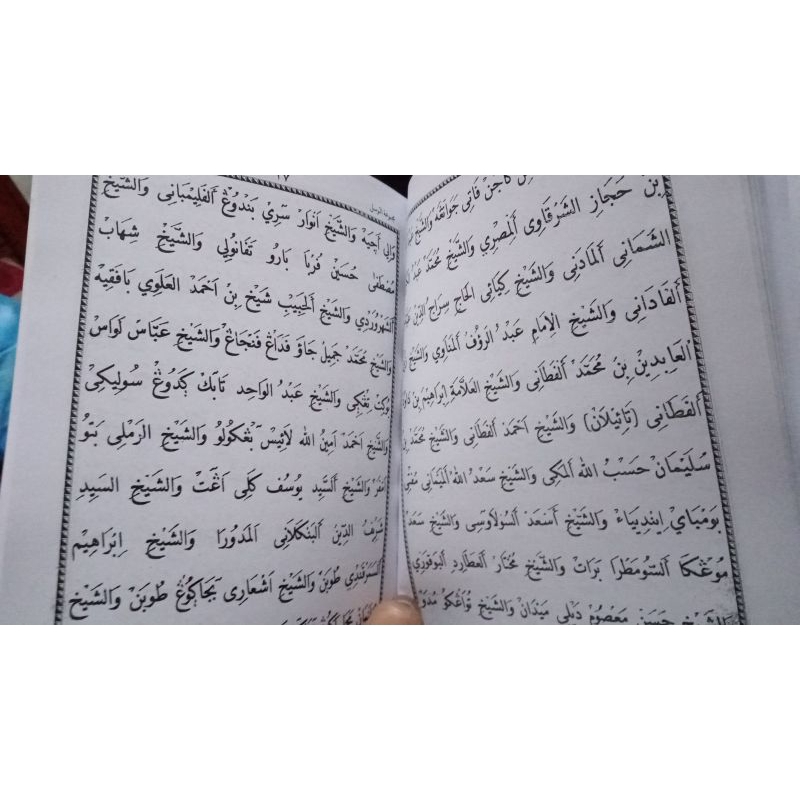 كاجن فاتي جوانغه والشيخ
بْنِ حَجَازِ الشَّرْقَاوِى الْمِصْرِي وَالشَّيْخِ مُحَمَّد عَبْدُ
الشَّمَانِى الْمَادَنِى وَالشَّيْخِ كِيَائِى الْحَاجِ سِرَاجُ الدِّيْنِ
الْفَادَانِى وَالشَّيْخِ الْاِمَامِ عَبْدُ الرَّؤُفِ الْمَنَاوِي وَالشَّيْخِ
الْعَابِدِيْنِ بْنِ مُحَمَّد الْفَطَانِى وَالشَّيْخِ الْعَلَّامَةِ اِبْرَاهِيْمِ بْنِ
الْفَطَانِى (تَائِيْلَانْ) وَالشَّيْخِ اَحْمَدْ الْفَطَانِى وَالشَّيْخِ مُحَمَّدْ
سُلَيْمَانْ حَسْبُ اللّٰه الْمَكِى وَالشَّيْخِ سَعْدُ اللّٰه الْمَيْمَانِى مُفْتِى
بَوْمْبَايْ اِيْنْدِيَاءْ وَالشَّيْخِ اَسْعَدْ السُّوْلَاوَسِى وَالشَّيْخِ سَعْدْ
مُوْعْكَا السُّوْمَطْرَا بَرَاتْ وَالشَّيْخِ مُخْتَارْ الْعَطَارِدِ الْبُوْقُوْرِي
وَالشَّيْخِ حَسَنْ مَعْصُوْمْ دَلِى مَيْدَانْ وَالشَّيْخِ تُوَاعْكُوْ
١٧
مجموعة التوسل
وَالِي اَجِيَهْ وَالشَّيْخِ اَنْوَارْ سَرِيْ بَنْدُوْڠْ الْفَلِيْمْبَانِى وَالشَّيْخِ
مُصْطَفَى حُسَيْن فُرْبَا بَارُو تَفَانُولِي وَالشَّيْخِ شِهَاب
السُّهْرَوَرْدِي وَالشَّيْخِ الْحَبِيْبِ شَيْخِ بْنِ اَحْمَدَ الْعَلَوِي بَافَقِيْه
وَالشَّيْخِ مُحَمَّدْ جَمِيْل جَاوْ فَدَاڠْ فَنْجَاڠْ وَالشَّيْخِ عَبَّاسْ لَاوَاسْ
وَالشَّيْخِ عَبْدُ الْوَاحِد تَابَكْ ڬَدُوْڠْ سُوْلِيْكِى
وَالشَّيْخِ اَحْمَدْ اَمِيْنُ اللّٰه لَائِيْسْ بَڠْكُولُو وَالشَّيْخِ الرَّمْلِى بَنُو
وَالشَّيْخِ السَّيِّدِ يُوْسُفْ كَلِى اَعْتْ وَالشَّيْخِ السَّيِّدِ
شَرَفُ الدِّيْنِ الْبَنْكَلَانِى الْمَدُوْرَا وَالشَّيْخِ اِبْرَاهِيْمْ
السَّمَرْقَنْدِي طُوْبَنْ وَالشَّيْخِ اَشْعَارِى بَجَاكُوْڠْ طُوْبَنْ وَالشَّيْخِ